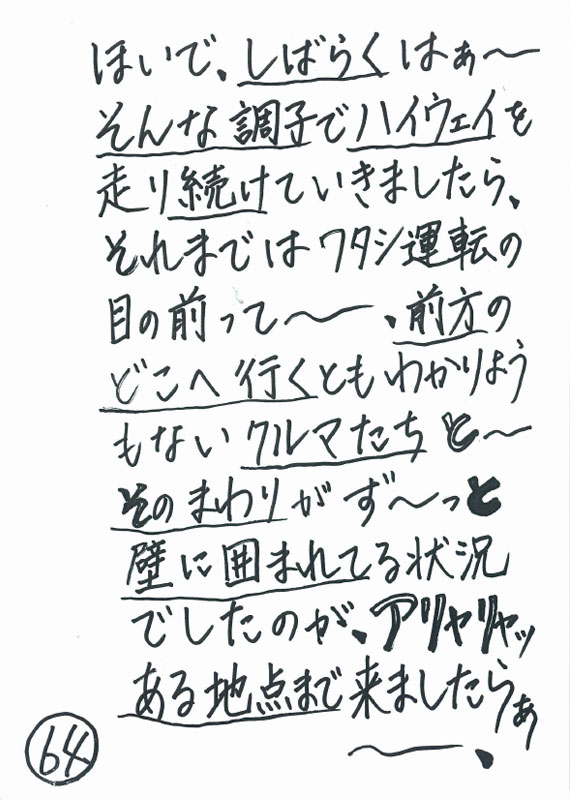 ほいで、しばらくはぁ〜
そんな調子でハイウェイを
走り続けていきましたら、
それまではワタシ運転の
目の前って〜、前方の
どこへ行くともわかりよう
もないクルマたちと〜
そのまわりがず〜っと
壁に囲まれてる状況
でしたのが、アリャリャッ
ある地点まで来ましたらぁ
〜、
64